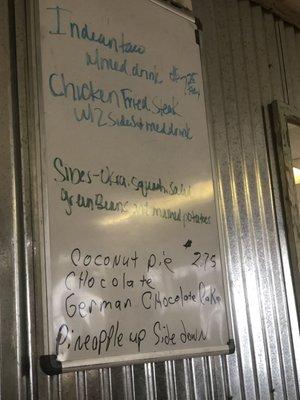 Indian taco
w/med. drink
Chicken Fried Steak
w/2 Sides & med drink
Sides - Okra, squash, salad
green Beans and mashed potatoes
Coconut Pie 2.75
CHocolate
German CHocolate Cake
Pineapple up Side down